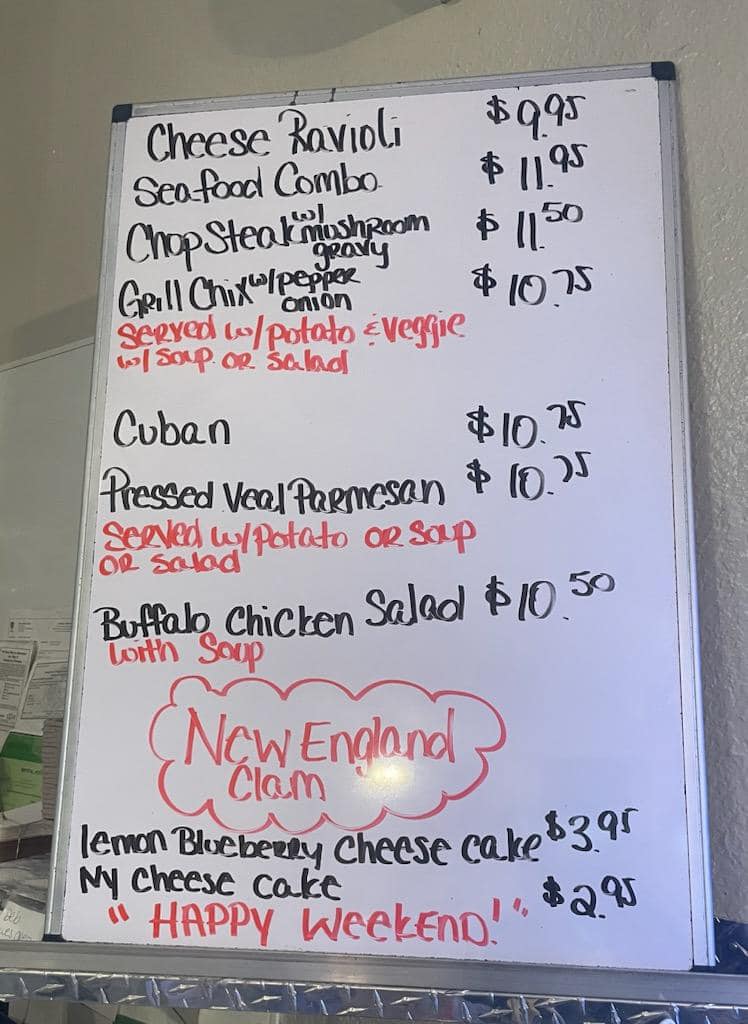 Cheese Ravioli $9.95
Seafood Combo $11.95
Chop Steak w/ mushroom gravy $11.50
Grill Chix w/ pepper onion $10.75
Served w/ potato & veggie
w/ soup or salad
Cuban $10.75
Pressed Veal Parmesan $10.75
Served w/ potato or soup
or salad
Buffalo Chicken Salad $10.50
with Soup
New England
Clam
lemon Blueberry cheese cake $3.95
NY cheese cake $2.95
" HAPPY WEEKEND! "